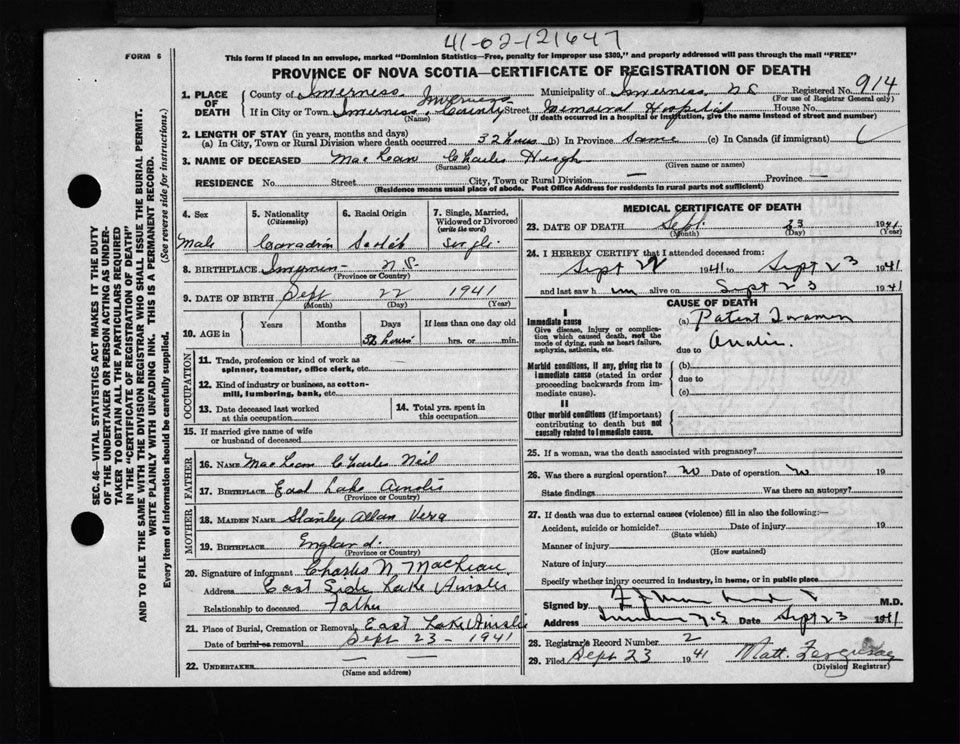 41-02-121647
FORM 6
This form if placed in an envelope, marked "Dominion Statistics—Free, penalty for improper use $300," and properly addressed will pass through the mail "FREE"
PROVINCE OF NOVA SCOTIA—CERTIFICATE OF REGISTRATION OF DEATH
SEC. 46—VITAL STATISTICS ACT MAKES IT THE DUTY
OF THE UNDERTAKER OR PERSON ACTING AS UNDER-
TAKER TO OBTAIN ALL THE PARTICULARS REQUIRED
IN THE "CERTIFICATE OF REGISTRATION OF DEATH"
AND TO FILE THE SAME WITH THE DIVISION REGISTRAR WHO SHALL ISSUE THE BURIAL PERMIT.
WRITE PLAINLY WITH UNFADING INK. THIS IS A PERMANENT RECORD.
Every item of information should be carefully supplied. (See reverse side for instructions.)
1. PLACE OF DEATH
County of Inverness Municipality of Inverness N.S Registered No. 914
(For use of Registrar General only)
If in City or Town Inverness, Inverness County Street Memorial Hospital House No.
(Name) (If death occurred in a hospital or institution, give the name instead of street and number)
2. LENGTH OF STAY (in years, months and days)
(a) In City, Town or Rural Division where death occurred 32 hours (b) In Province Same (c) In Canada (if immigrant)
3. NAME OF DECEASED MacLean Charles Hugh
(Surname) (Given name or names)
RESIDENCE No. Street City, Town or Rural Division — Province —
(Residence means usual place of abode. Post Office Address for residents in rural parts not sufficient)
4. Sex
Male
5. Nationality
(Citizenship)
Canadian
6. Racial Origin
Scotch
7. Single, Married,
Widowed or Divorced
(write the word)
Single
8. BIRTHPLACE Inverness N.S.
(Province or Country)
9. DATE OF BIRTH Sept 22 1941
(Month) (Day) (Year)
10. AGE in
Years Months Days If less than one day old
32 hours hrs. or min.
OCCUPATION
11. Trade, profession or kind of work as
spinner, teamster, office clerk, etc.
12. Kind of industry or business, as cotton-
mill, lumbering, bank, etc.
13. Date deceased last worked
at this occupation
14. Total yrs. spent in
this occupation
15. If married give name of wife
or husband of deceased
FATHER
16. NAME MacLean Charles Neil
17. BIRTHPLACE East Lake Ainslie
(Province or Country)
MOTHER
18. MAIDEN NAME Stanley Allan Vera
19. BIRTHPLACE England.
(Province or Country)
20. Signature of informant Charles N MacLean
Address East Side Lake Ainslie
Relationship to deceased Father
21. Place of Burial, Cremation or Removal East Lake Ainslie
Date of burial or removal Sept 23 - 1941
22. UNDERTAKER — —
(Name and address)
MEDICAL CERTIFICATE OF DEATH
23. DATE OF DEATH Sept. 23 1941
(Month) (Day) (Year)
24. I HEREBY CERTIFY that I attended deceased from:
Sept 22 1941 to Sept 23 1941
and last saw h im alive on Sept 23 1941
CAUSE OF DEATH
I
Immediate cause
Give disease, injury or complica-
tion which caused death, not the
mode of dying, such as heart failure,
asphyxia, asthenia, etc.
(a) Patent Foramen
Ovale.
due to
Morbid conditions, if any, giving rise to
immediate cause (stated in order
proceeding backwards from im-
mediate cause).
(b)
due to
(c)
II
Other morbid conditions (if important)
contributing to death but not
causally related to immediate cause.
25. If a woman, was the death associated with pregnancy?
26. Was there a surgical operation? no Date of operation no 19
State findings Was there an autopsy?
27. If death was due to external causes (violence) fill in also the following:—
Accident, suicide or homicide? Date of injury 19
(State which)
Manner of injury
(How sustained)
Nature of injury
Specify whether injury occurred in industry, in home, or in public place
Signed by M.D.
Address Inverness N.S Date Sept 23 1941
28. Registrar's Record Number 2
29. Filed Sept 23 1941 Matt. Ferguson
(Division Registrar)